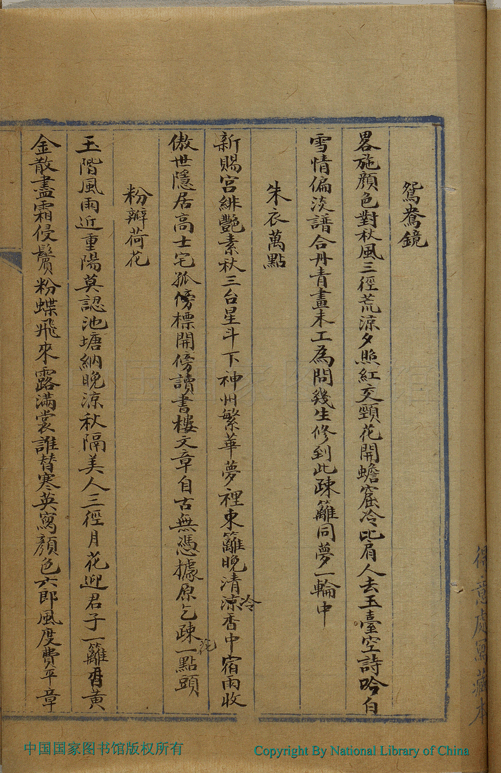 鴛鴦鏡
畧施顏色對秋風三徑荒涼夕照紅交頸花開蟾窟冷比肩人去玉臺空詩吟白
雪情偏淡譜合丹青畫未工為問幾生修到此疎籬同夢一輪中
朱衣萬點
新賜宮緋艷素秋三台星斗下神州繁華夢裡東籬晚清涼冷香中宿雨收
傲世隱居高士宅孤標開傍讀書樓文章自古無憑據原乞疎一點頭
粉瓣荷花
玉階風雨近重陽莫認池塘納晚涼秋隔美人三徑月花迎君子一籬黃
金散盡霜侵鬢粉蝶飛來露滿裳誰替寒英寫顏色六郎風度費平章
得意處
藏本
中国国家图书馆版权所有
Copyright By National Library of China